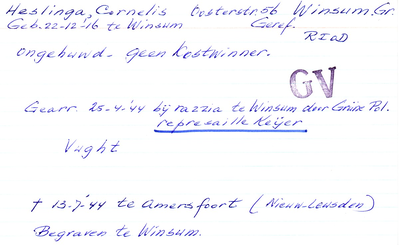 Heslinga, Cornelis Oosterstr. 56 Winsum, Gr.
Geb. 22-12-'16 te Winsum Geref.
RIOD
Ongehuwd - Geen Kostwinner.
GV
Gearr. 25-4-'44 bij razzia te Winsum door Grüne Pol.
represaille Keijer
Vught
† 13-7-'44 te Amersfoort (Nieuw-Leusden)
Begraven te Winsum.